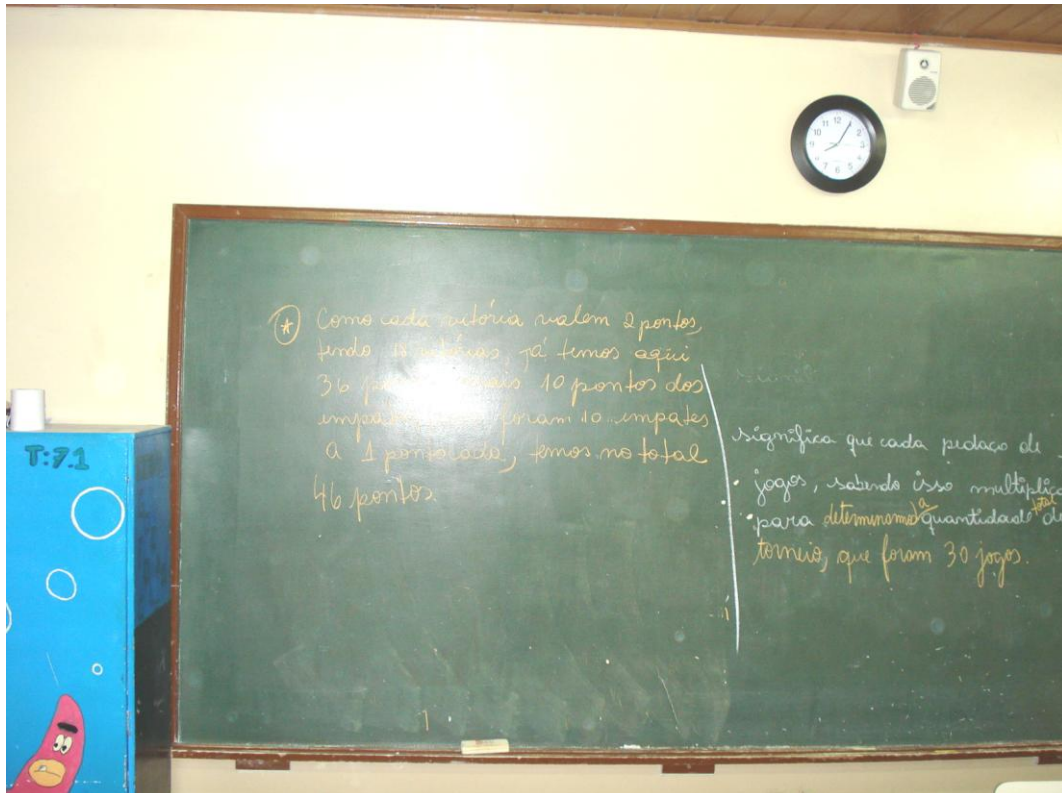 Como cada vitória valem 2 pontos,
tendo 18 vitórias, já temos aqui
36 mais 10 pontos dos
foram 10 impates
a 1 ponto cada, temos no total
46 pontos.
significa que cada pedaço de
jogos, sabendo isso multiplica
para determinamos a quantidade total de
torneio, que foram 30 jogos.
T:7.1